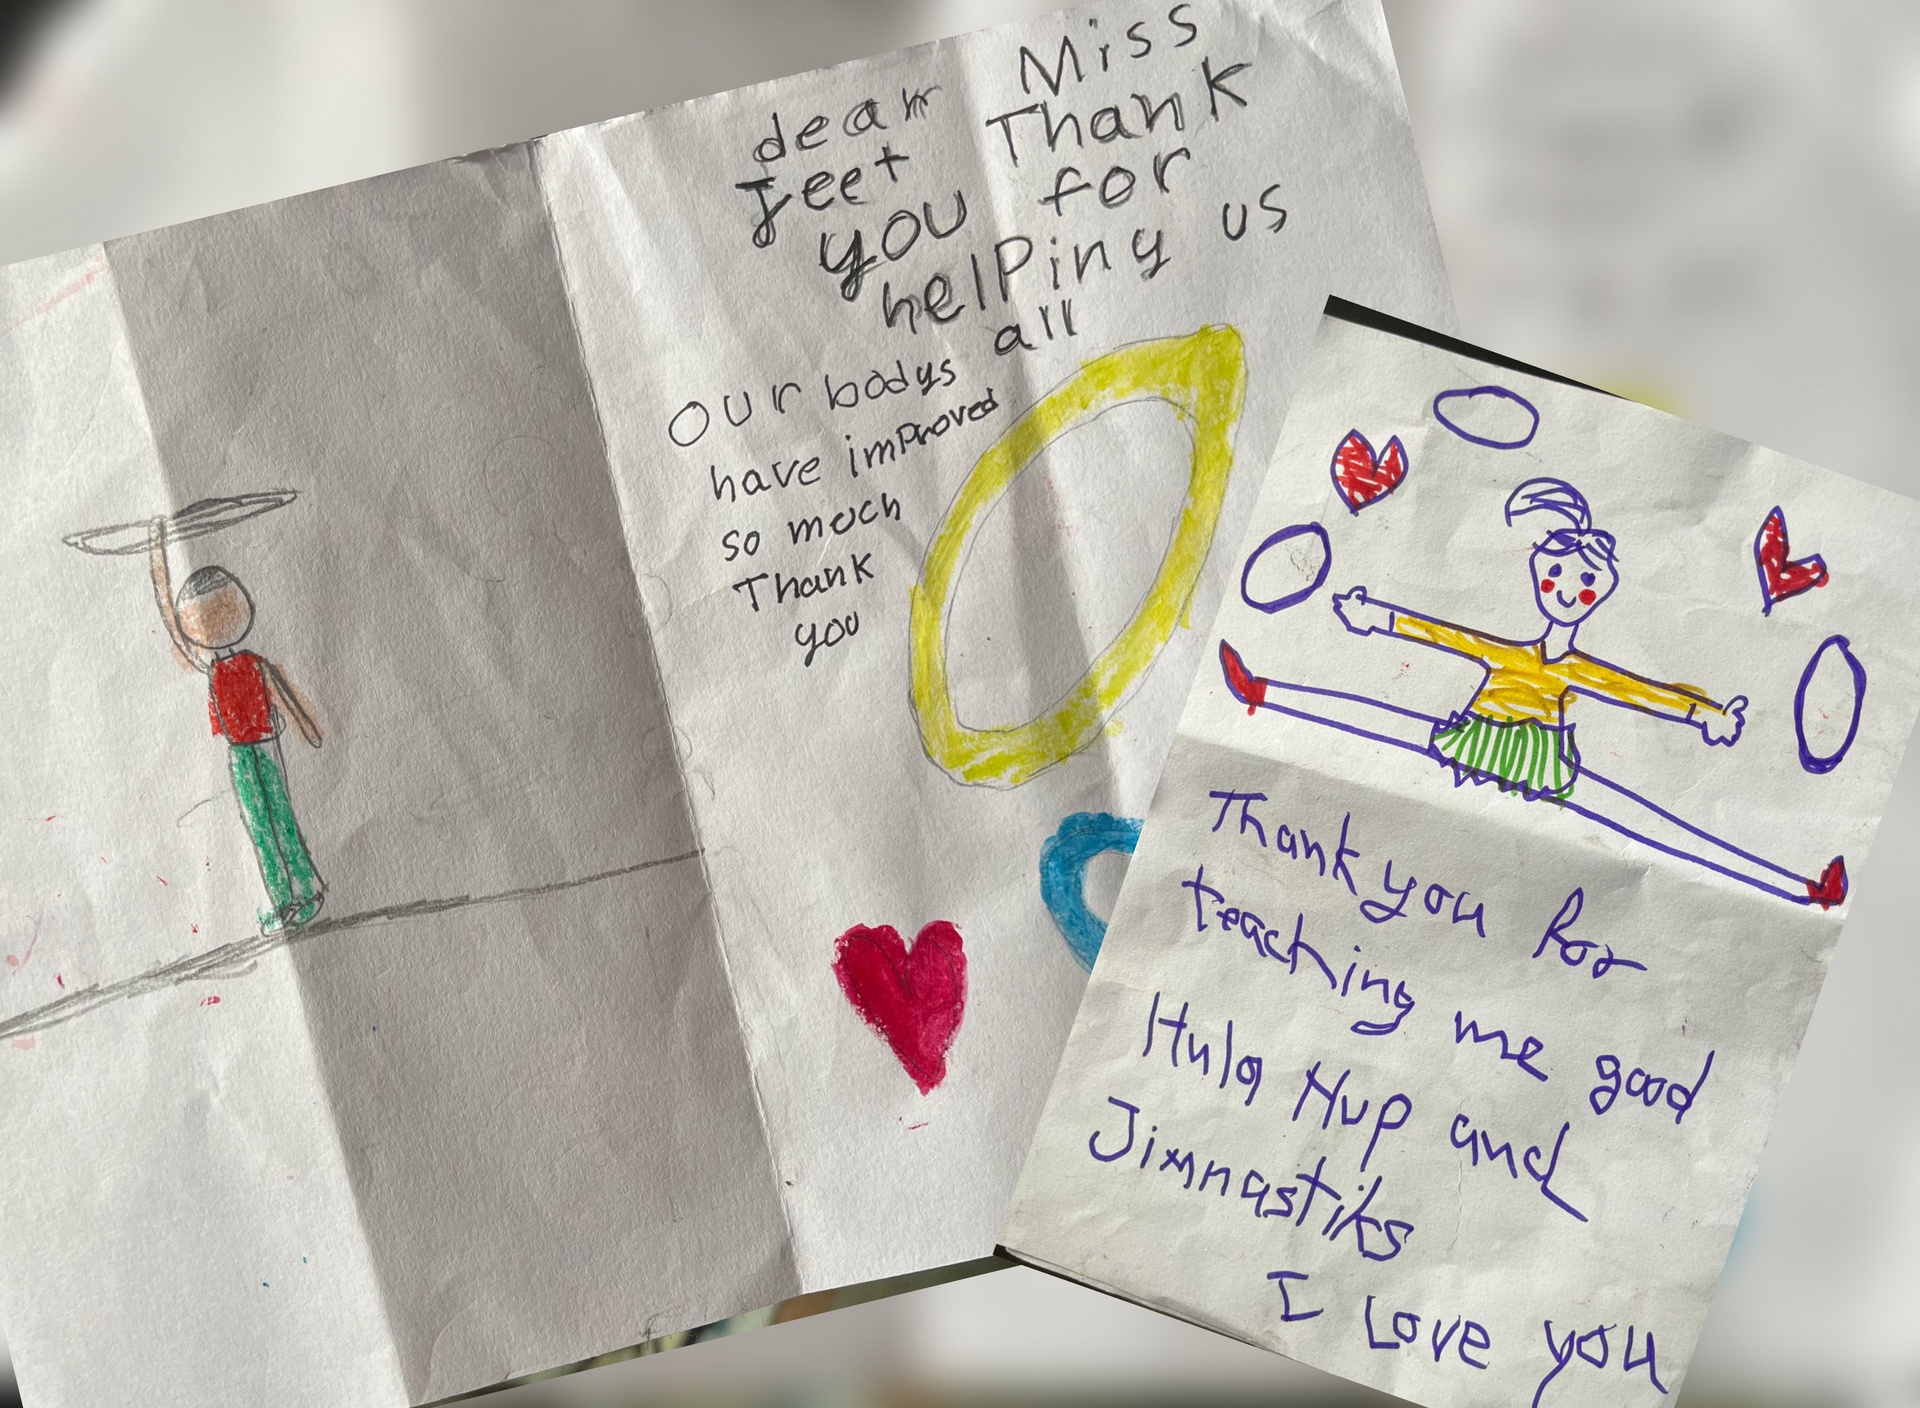 dear Miss
Jeet Thank
you for
helping us
all
our bodys
have improved
so much
Thank
you
Thank you for
teaching me good
Hula Hup and
Jimnastiks
I Love you